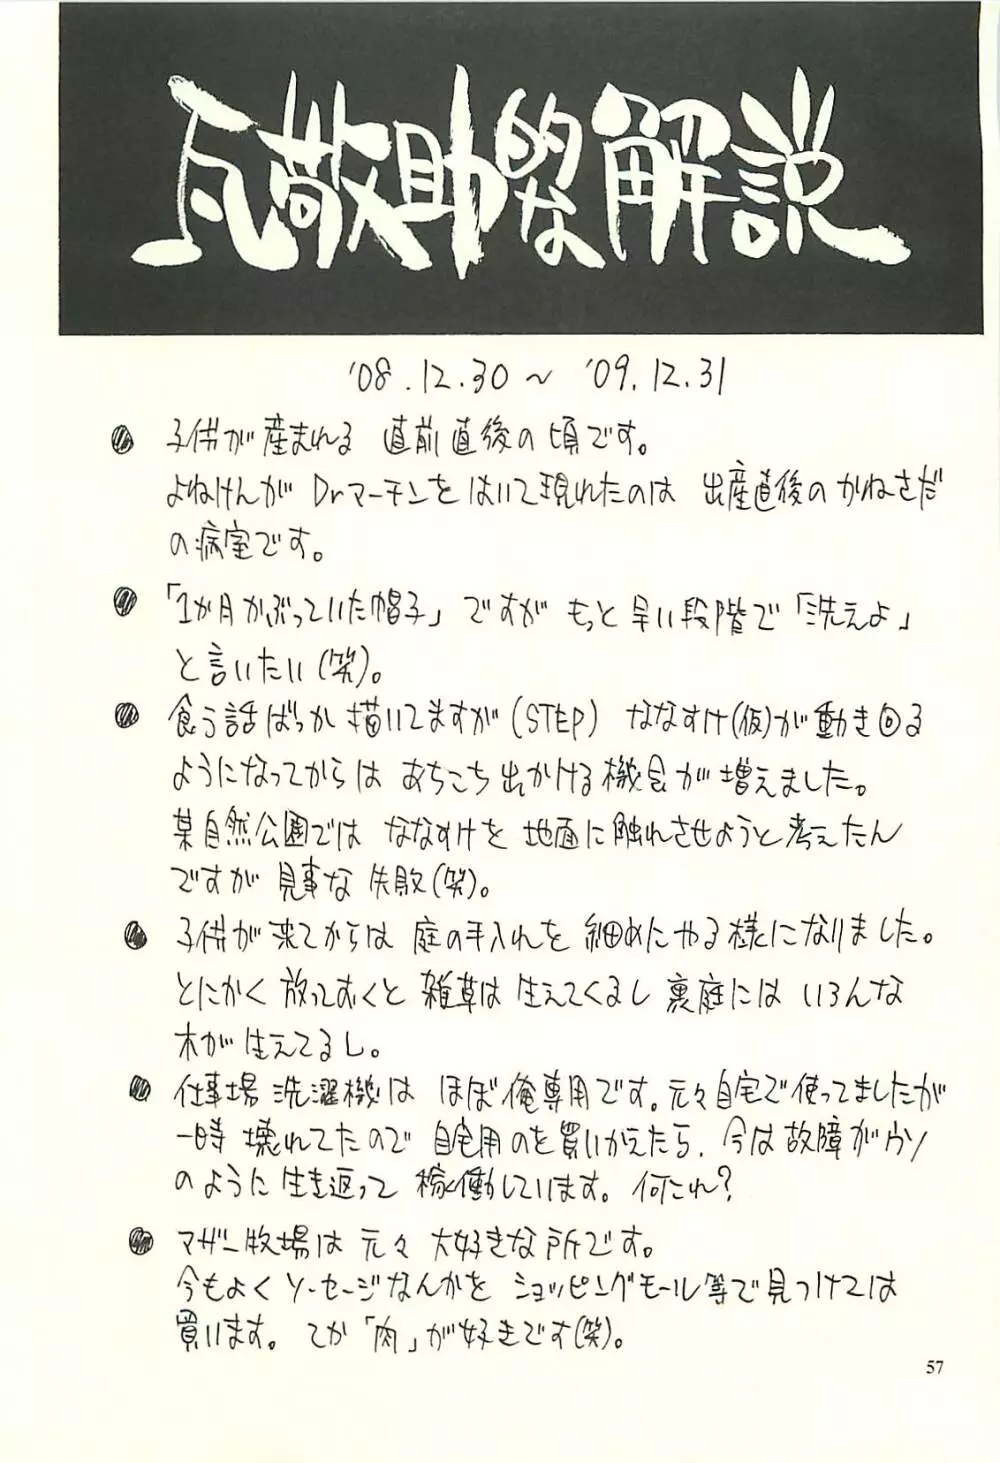 瓦敬助的な解説
'08.12.30～'09.12.31
● 子供が産まれる 直前直後の頃です。
よねけんがDrマーチンをはいて現れたのは 出産直後のかねさだ
の病室です。
● 「1か月かぶっていた帽子」ですが もっと早い段階で「洗えよ」
と言いたい(笑)。
● 食う話ばっか描いてますが(STEP) ななすけ(仮)が動き回る
ようになってからは あちこち出かける機会が増えました。
某自然公園では ななすけを 地面に触れさせようと考えたん
ですが 見事な失敗(笑)。
● 子供が来てからは 庭の手入れを 細めにやる様になりました。
とにかく 放っておくと 雑草は 生えてくるし 裏庭には いろんな
木が生えてるし。
● 仕事場 洗濯機は ほぼ俺専用です。元々自宅で使ってましたが
一時 壊れてたので 自宅用のを買いかえたら、今は故障がウソ
のように生き返って 稼働しています。何これ?
● マザー牧場は 元々 大好きな所です。
今もよく ソーセージなんかを ショッピングモール等で見つけては
買います。てか「肉」が好きです(笑)。
57